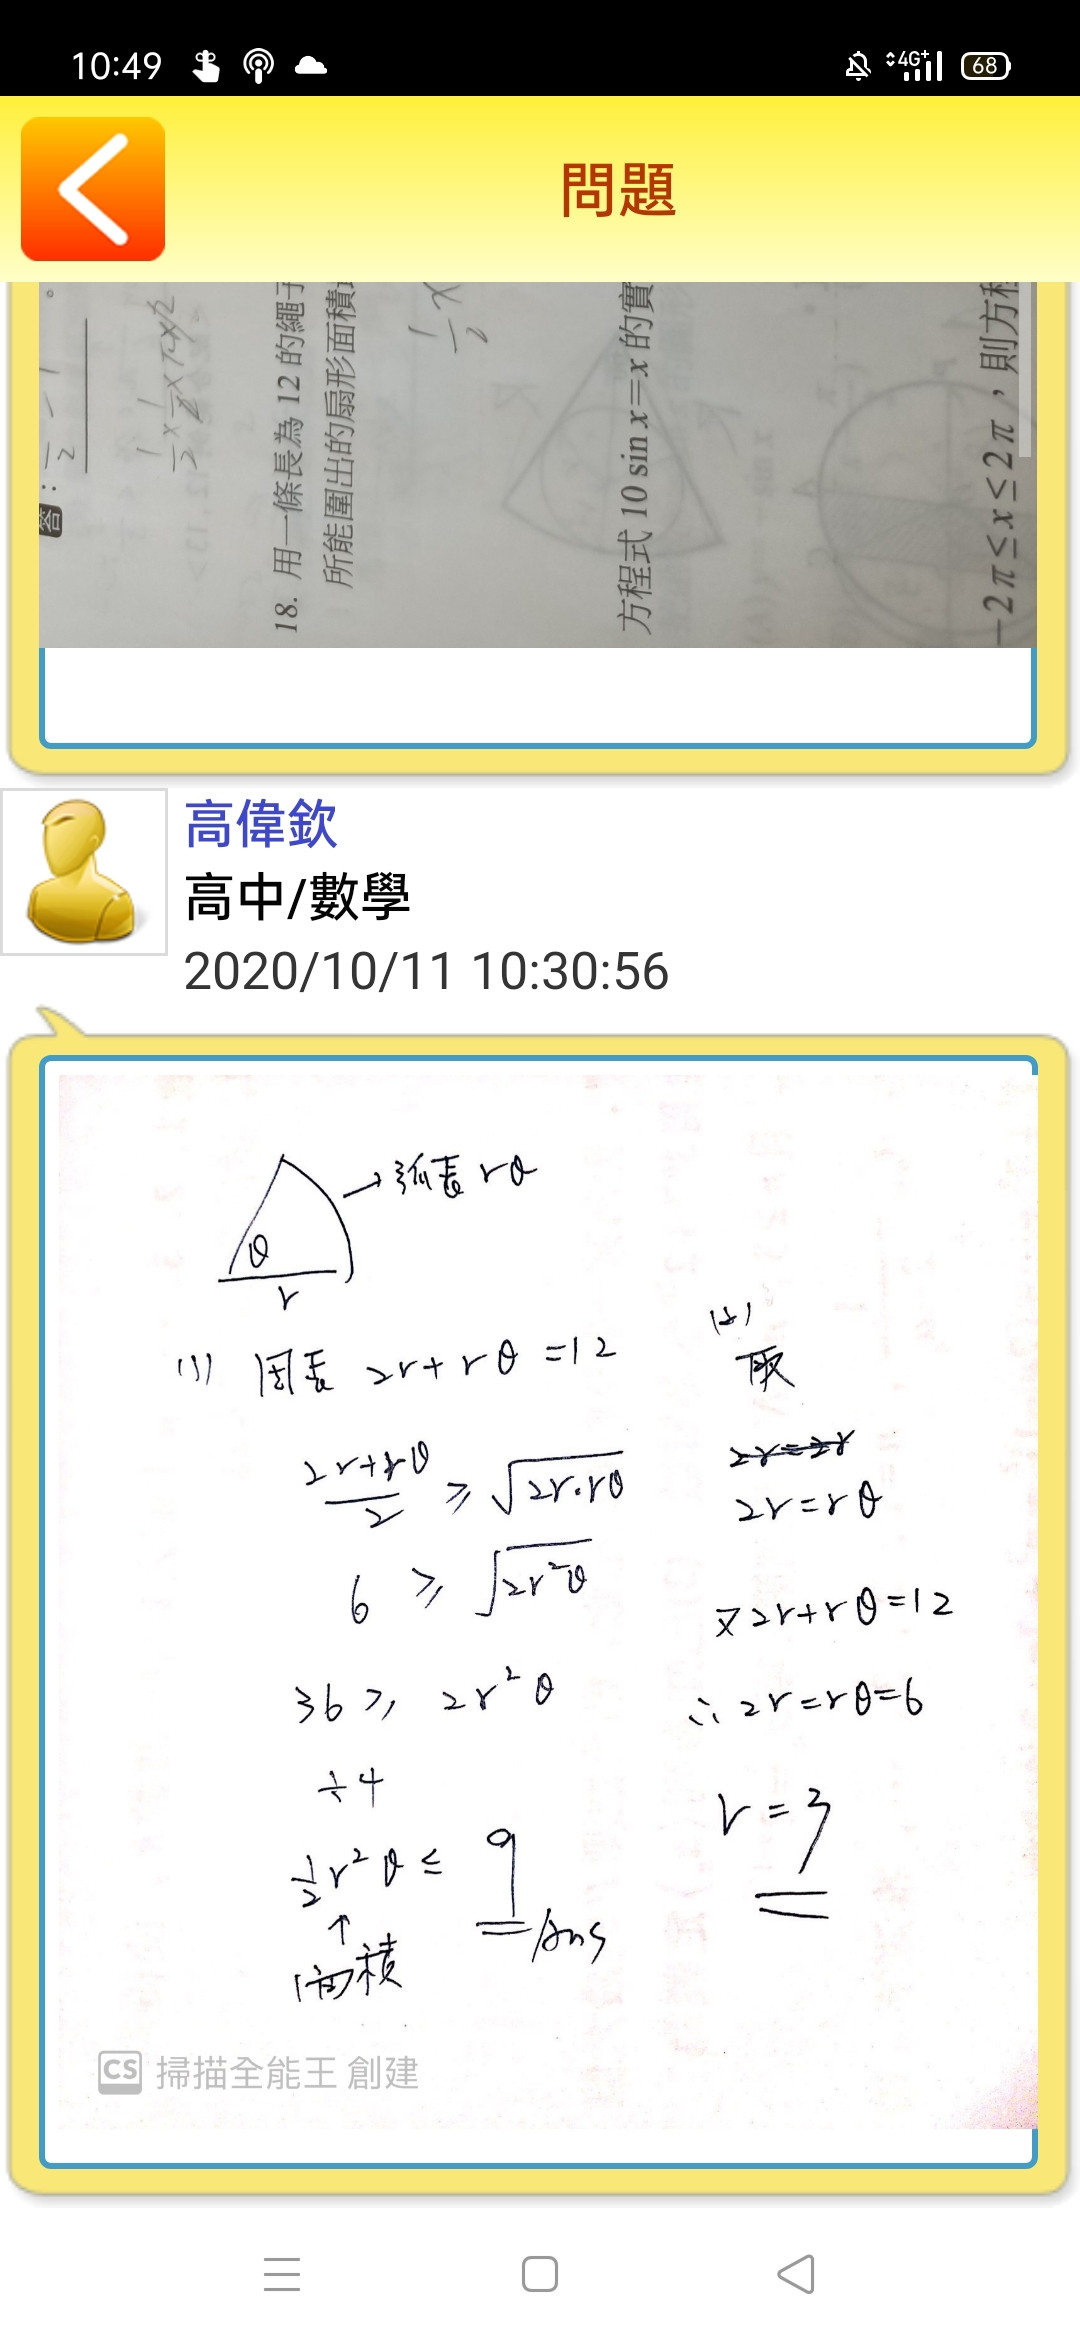 10:49 4G+ 68
問題
答:
1/2 - 1
。
1/2 × 1/2 ×
18. 用一條長為 12 的繩子
所能圍出的扇形面積
1/2 ×
方程式 10 sin x=x 的實
-2π≤x≤2π,則方程
高偉欽
高中/數學
2020/10/11 10:30:56
→弧長 rθ
θ
r
(1) 周長 2r+rθ=12
(2r+rθ)/2 ≥ √(2r·rθ)
6 ≥ √(2r²θ)
36 ≥ 2r²θ
÷4
1/2 r²θ ≤ 9 Ans
↑
面積
(2)
取
2r=2r
2r=rθ
又2r+rθ=12
∴ 2r=rθ=6
r=3
CS 掃描全能王 創建